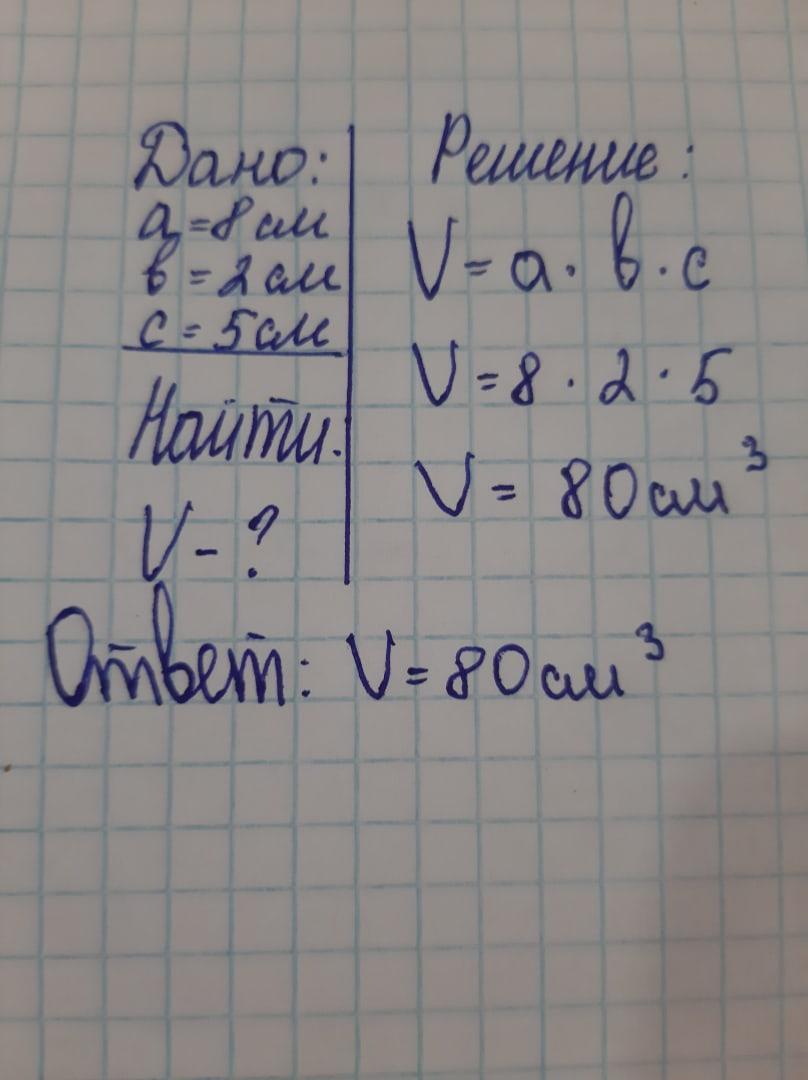 Дано:
a = 8 см
в = 2 см
c = 5 см
Найти.
V - ?
Решение:
V = a · в · c
V = 8 · 2 · 5
V = 80 см³
Ответ: V = 80 см³